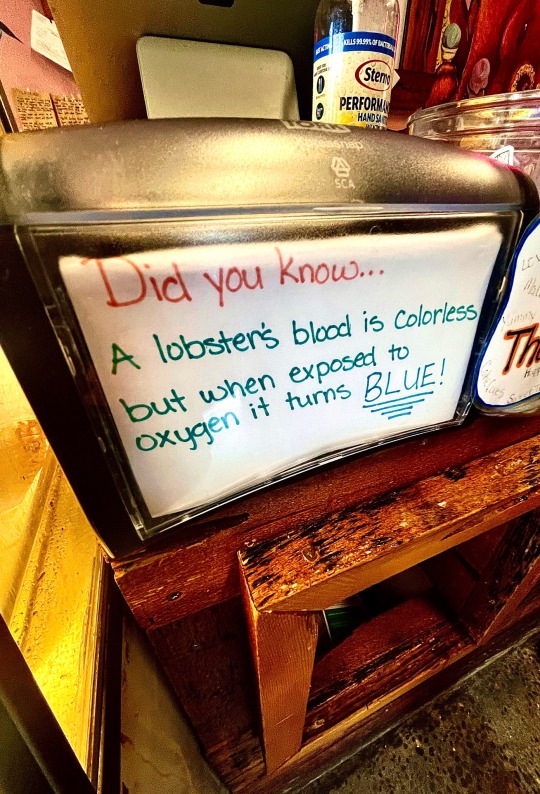 KILLS 99.99% OF BACTERIA
Sterno
PERFORMA
HAND SA
SCA
Did you know...
A lobster's blood is Colorless
but when exposed to
oxygen it turns BLUE!
Th